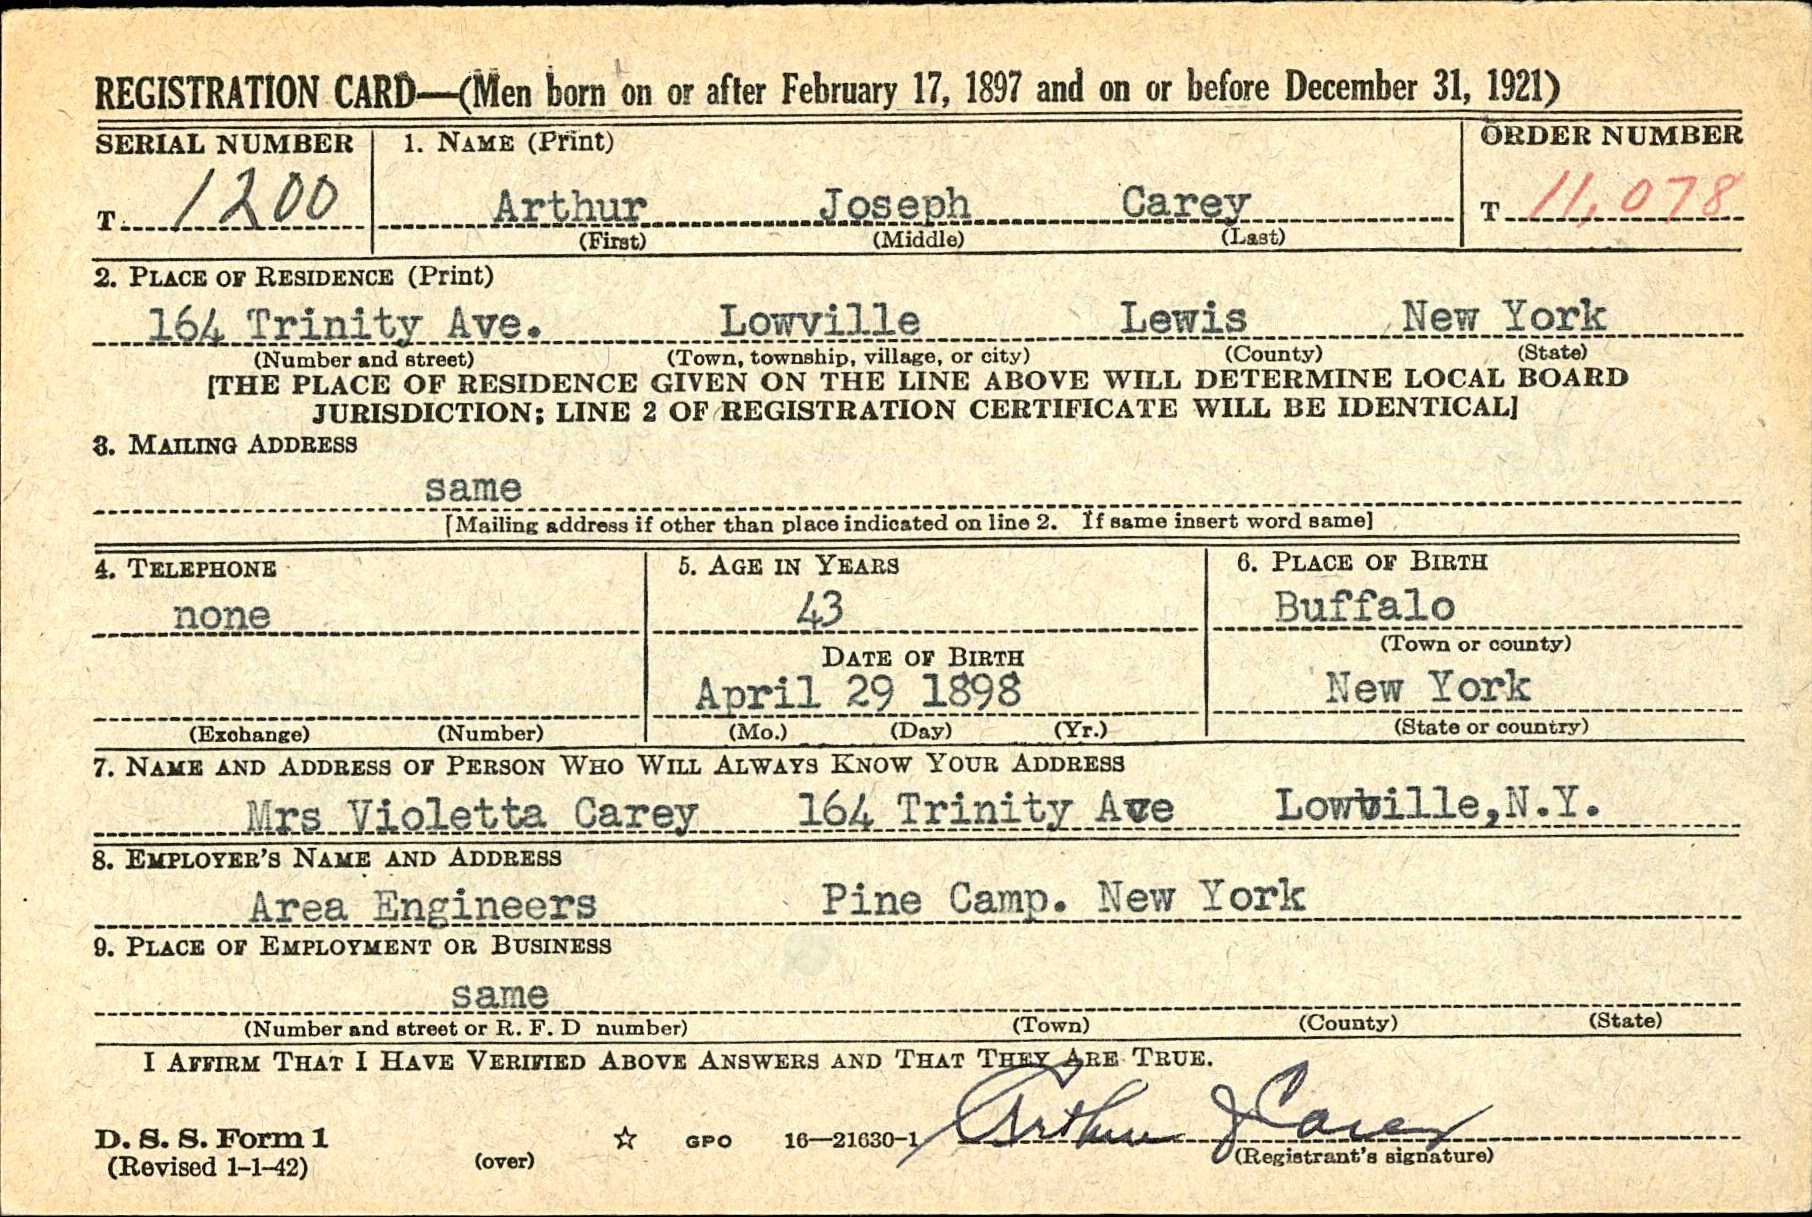 REGISTRATION CARD—(Men born on or after February 17, 1897 and on or before December 31, 1921)
SERIAL NUMBER 1. NAME (Print) ORDER NUMBER
T 1200 Arthur Joseph Carey T 11,078
(First) (Middle) (Last)
2. PLACE OF RESIDENCE (Print)
164 Trinity Ave. Lowville Lewis New York
(Number and street) (Town, township, village, or city) (County) (State)
[THE PLACE OF RESIDENCE GIVEN ON THE LINE ABOVE WILL DETERMINE LOCAL BOARD
JURISDICTION; LINE 2 OF REGISTRATION CERTIFICATE WILL BE IDENTICAL]
3. MAILING ADDRESS
same
[Mailing address if other than place indicated on line 2. If same insert word same]
4. TELEPHONE 5. AGE IN YEARS 6. PLACE OF BIRTH
none 43 Buffalo
(Town or county)
DATE OF BIRTH
April 29 1898 New York
(Exchange) (Number) (Mo.) (Day) (Yr.) (State or country)
7. NAME AND ADDRESS OF PERSON WHO WILL ALWAYS KNOW YOUR ADDRESS
Mrs Violetta Carey 164 Trinity Ave Lowville,N.Y.
8. EMPLOYER'S NAME AND ADDRESS
Area Engineers Pine Camp. New York
9. PLACE OF EMPLOYMENT OR BUSINESS
same
(Number and street or R. F. D number) (Town) (County) (State)
I AFFIRM THAT I HAVE VERIFIED ABOVE ANSWERS AND THAT THEY ARE TRUE.
D. S. S. Form 1 GPO 16—21630-1 Arthur J Carey
(Revised 1-1-42) (over) (Registrant's signature)